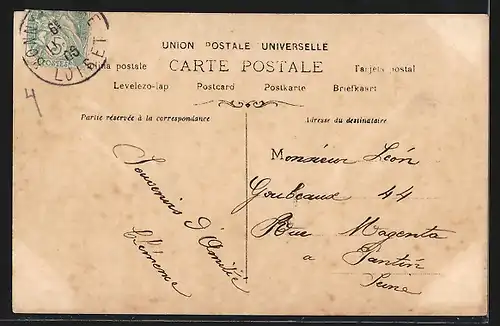 UNION POSTALE UNIVERSELLE
CARTE POSTALE
postale
Tarjeta postal
Levelezo-lap Postcard Postkarte Briefkaart
Partie réservée à la correspondance
Adresse du destinataire
LOIRET
4
Souvenirs d'Amitié
Clémence
Monsieur Léon
Goubeaux 44
Rue Magenta
a Pantin
Seine